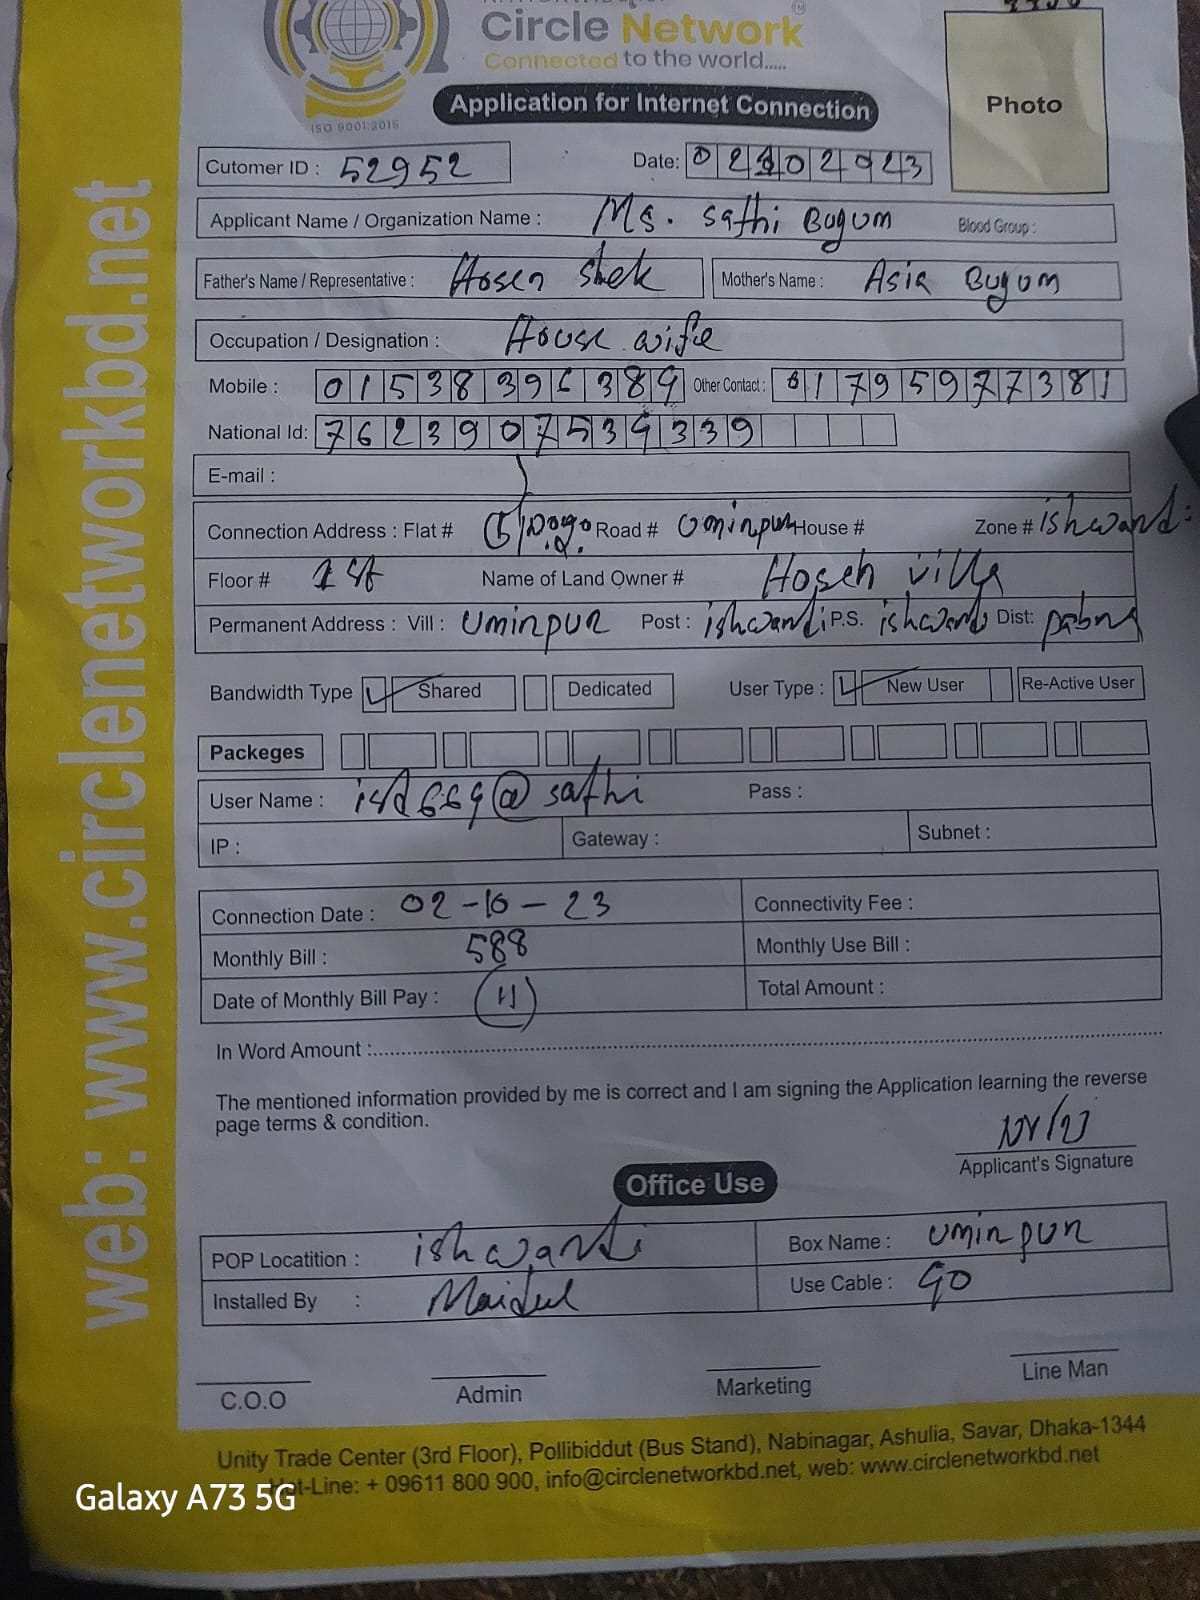 Circle Network
TM
Connected to the world.....
ISO 9001:2015
Application for Internet Connection
Photo
Cutomer ID : 52952
Date:
Applicant Name / Organization Name : Ms. Sathi Bugum Blood Group :
Father's Name / Representative : Hosen Shek Mother's Name : Asia Bugum
Occupation / Designation : House wife
Mobile : 01538396389 Other Contact : 01795977381
National Id: 7623907539339
E-mail :
Connection Address : Flat # Road # Uminpur House # Zone # ishwardi
Floor # 1st Name of Land Owner # Hoseh villa
Permanent Address : Vill : Uminpur Post : ishwardi P.S. ishwardi Dist: pabna
Bandwidth Type Shared Dedicated User Type : New User Re-Active User
Packeges
User Name : isd669@sathi Pass :
IP : Gateway : Subnet :
Connection Date : 02-10-23 Connectivity Fee :
Monthly Bill : 588 Monthly Use Bill :
Date of Monthly Bill Pay : Total Amount :
In Word Amount :
The mentioned information provided by me is correct and I am signing the Application learning the reverse
page terms & condition.
Applicant's Signature
Office Use
POP Locatition : ishwardi Box Name : uminpur
Installed By : Maidul Use Cable : 90
C.O.O Admin Marketing Line Man
Unity Trade Center (3rd Floor), Pollibiddut (Bus Stand), Nabinagar, Ashulia, Savar, Dhaka-1344
Hot-Line: + 09611 800 900, info@circlenetworkbd.net, web: www.circlenetworkbd.net
web: www.circlenetworkbd.net
Galaxy A73 5G